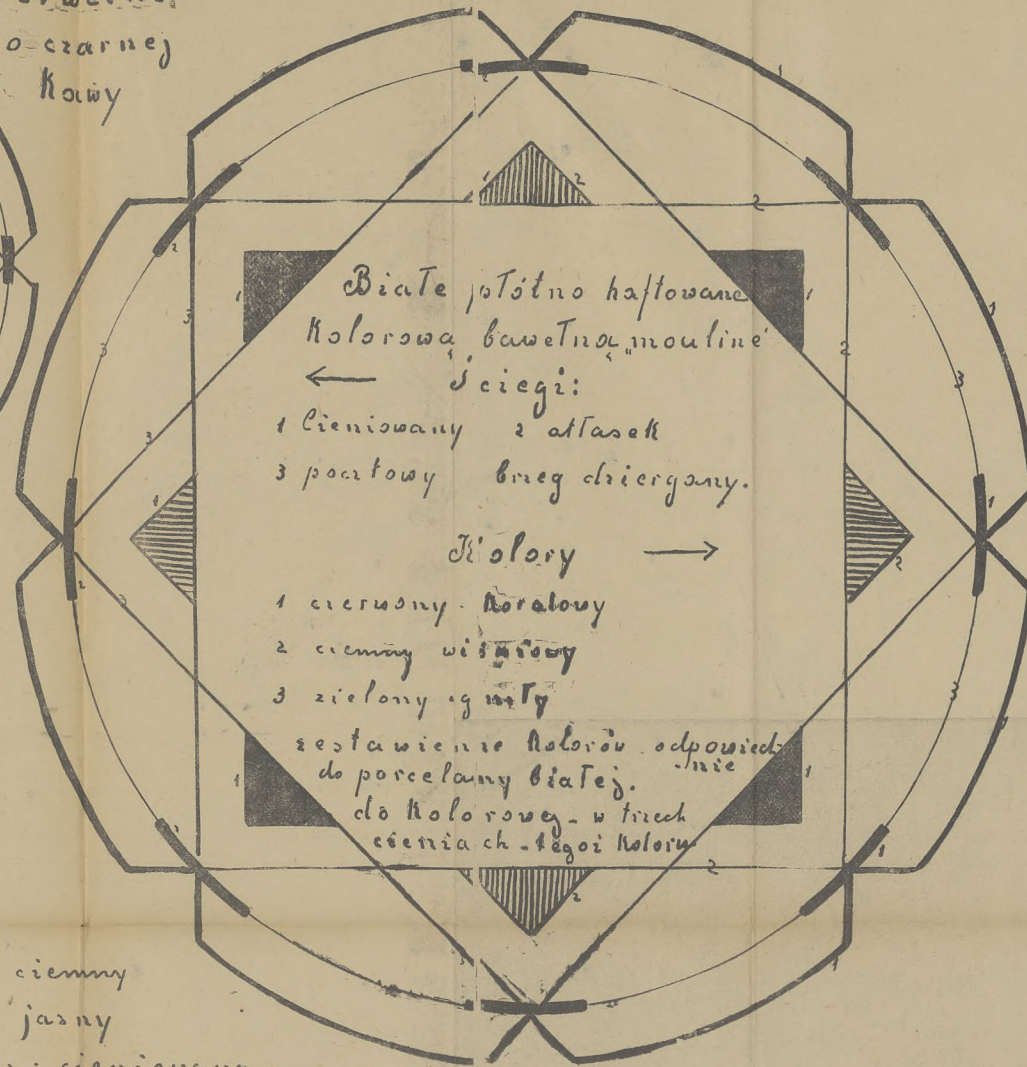 o czarnej
Kawy
Białe płótno haftowane
Kolorową bawełną „mouliné
Ściegi:
1 Cieniowany 2 atłasek
3 pocztowy brzeg dziergany.
Kolory
1 czerwony koralowy
2 ciemny wiśniowy
3 zielony zgniły
zestawienie kolorów odpowied-
nie
do porcelany białej.
do kolorowej - w trzech
cieniach - tegoż koloru
ciemny
jasny